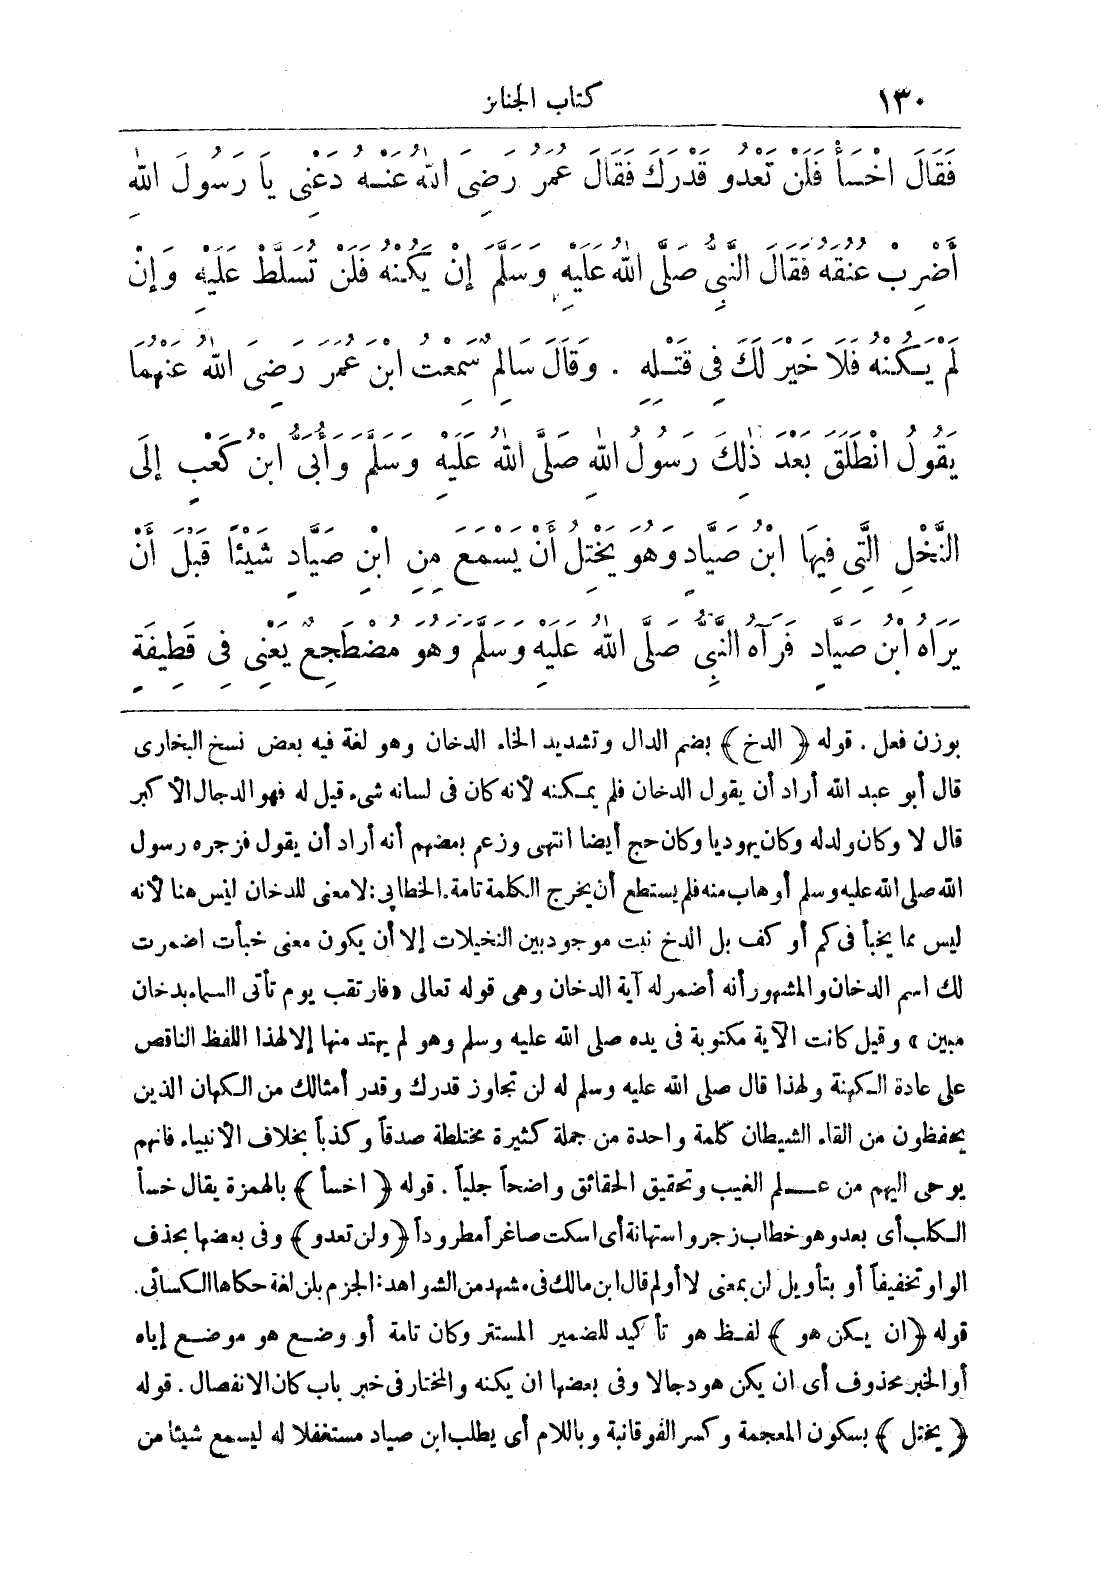 ١٣٠ كتاب الجنائز
فَقَالَ اخْسَأْ فَلَنْ تَعْدُوَ قَدْرَكَ فَقَالَ عُمَرُ رَضِىَ اللهُ عَنْهُ دَعْنِى يَا رَسُولَ اللهِ
أَضْرِبْ عُنُقَهُ فَقَالَ النَّبِىُّ صَلَّى اللهُ عَلَيْهِ وَسَلَّمَ إِنْ يَكُنْهُ فَلَنْ تُسَلَّطَ عَلَيْهِ وَإِنْ
لَمْ يَكُنْهُ فَلَا خَيْرَ لَكَ فِى قَتْلِهِ . وَقَالَ سَالِمٌ سَمِعْتُ ابْنَ عُمَرَ رَضِىَ اللهُ عَنْهُمَا
يَقُولُ انْطَلَقَ بَعْدَ ذٰلِكَ رَسُولُ اللهِ صَلَّى اللهُ عَلَيْهِ وَسَلَّمَ وَأُبَىُّ ابْنُ كَعْبٍ إِلَى
النَّخْلِ الَّتِى فِيهَا ابْنُ صَيَّادٍ وَهُوَ يَخْتِلُ أَنْ يَسْمَعَ مِنِ ابْنِ صَيَّادٍ شَيْئًا قَبْلَ أَنْ
يَرَاهُ ابْنُ صَيَّادٍ فَرَآهُ النَّبِىُّ صَلَّى اللهُ عَلَيْهِ وَسَلَّمَ وَهُوَ مُضْطَجِعٌ يَعْنِى فِى قَطِيفَةٍ
بوزن فعل . قوله ﴿ الدخ ﴾ بضم الدال وتشديد الخاء الدخان وهو لغة فيه بعض نسخ البخارى
قال أبو عبد الله أراد أن يقول الدخان فلم يمكنه لأنه كان فى لسانه شىء قيل له فهو الدجال الأكبر
قال لا وكان ولد له وكان يهوديا وكان حج أيضا انتهى وزعم بعضهم أنه أراد أن يقول فزجره رسول
الله صلى الله عليه وسلم أو هاب منه فلم يستطع أن يخرج الكلمة تامة. الخطابى: لا معنى للدخان ليس هنا لأنه
ليس مما يخبأ فى كم أو كف بل الدخ نبت موجود بين النخيلات إلا أن يكون معنى خبأت اضمرت
لك اسم الدخان والمشهور أنه أضمر له آية الدخان وهى قوله تعالى «فارتقب يوم تأتى السماء بدخان
مبين» وقيل كانت الآية مكتوبة فى يده صلى الله عليه وسلم وهو لم يهتد منها إلا لهذا اللفظ الناقص
على عادة الكهنة ولهذا قال صلى الله عليه وسلم له لن تجاوز قدرك وقدر أمثالك من الكهان الذين
يحفظون من القاء الشيطان كلمة واحدة من جملة كثيرة مختلطة صدقاً وكذباً بخلاف الأنبياء فانهم
يوحى اليهم من عــلم الغيب وتحقيق الحقائق واضحاً جلياً . قوله ﴿ اخسأ ﴾ بالهمزة يقال خسأ
الكلب أى بعد وهو خطاب زجر واستهانة أى اسكت صاغر أمطروداً ﴿ ولن تعدو﴾ وفى بعضها بحذف
الواو تخفيفاً أو بتأويل لن بمعنى لا أو لم قال ابن مالك فى مشهد من الشواهد: الجزم بلن لغة حكاها الكسائى.
قوله ﴿ان يكن هو ﴾ لفظ هو تأكيد للضمير المستتر وكان تامة أو وضع هو موضع إياه
أو الخبر محذوف أى ان يكن هو دجالا وفى بعضها ان يكنه والمختار فى خبر باب كان الانفصال . قوله
﴿ يختل ﴾ بسكون المعجمة وكسر الفوقانية وباللام أى يطلب ابن صياد مستغفلا له ليسمع شيئا من